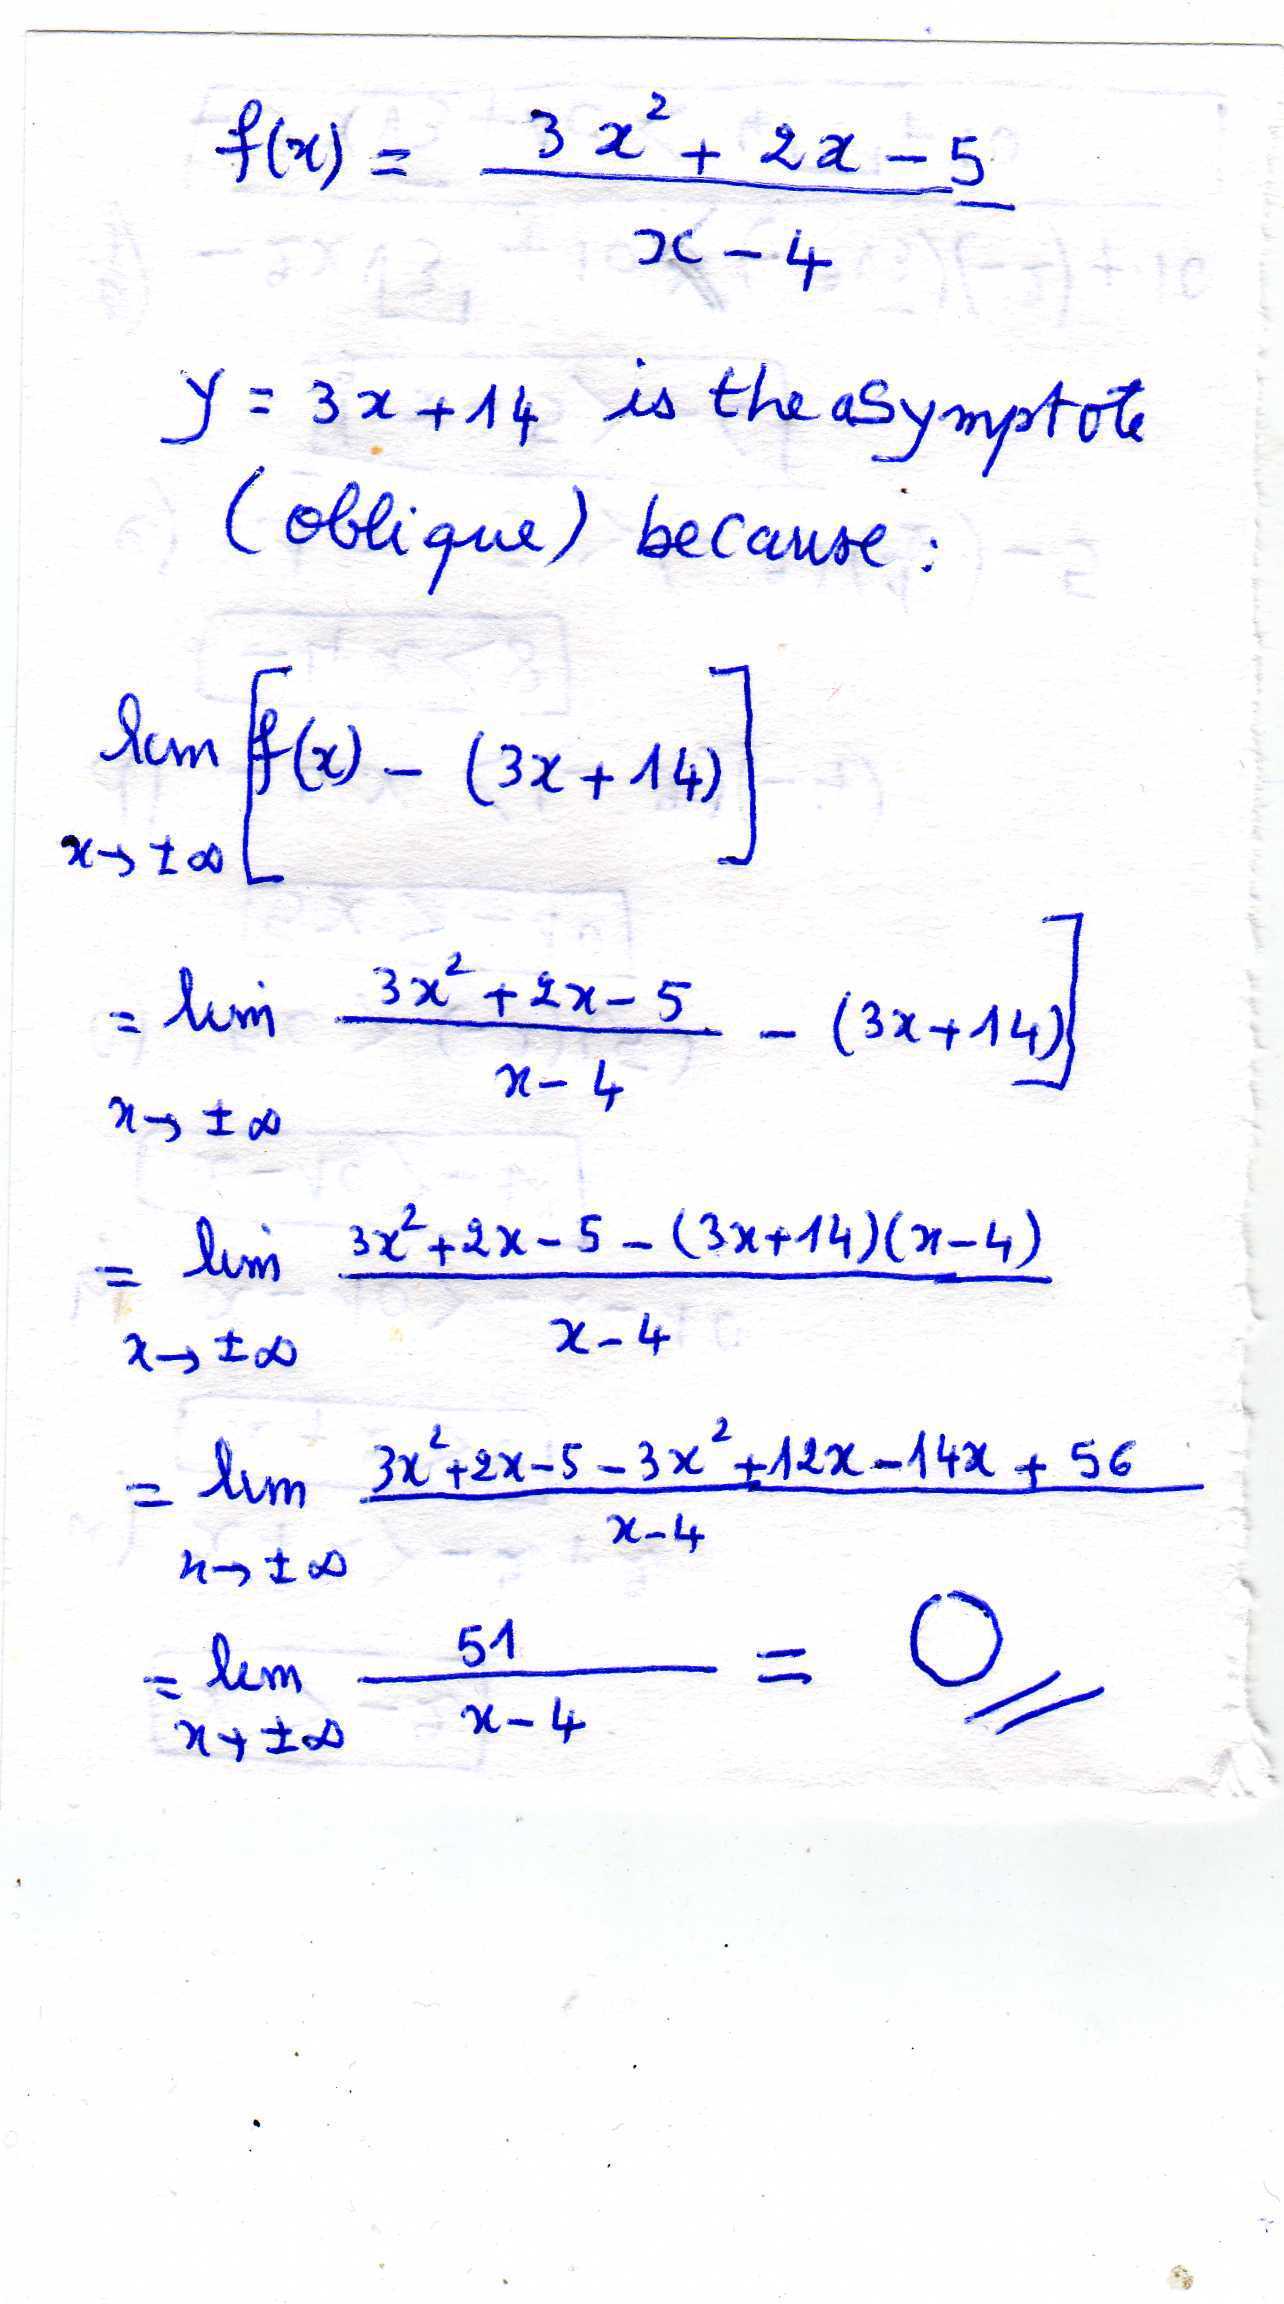 f(x) = 3x² + 2x - 5
x - 4
y = 3x + 14 is the asymptote
(oblique) because:
lim [f(x) - (3x + 14)]
x → ± ∞
= lim 3x² + 2x - 5 - (3x + 14)]
x - 4
x → ± ∞
= lim 3x² + 2x - 5 - (3x + 14)(x - 4)
x → ± ∞ x - 4
= lim 3x² + 2x - 5 - 3x² + 12x - 14x + 56
x - 4
x → ± ∞
= lim 51 = 0
x → ± ∞ x - 4